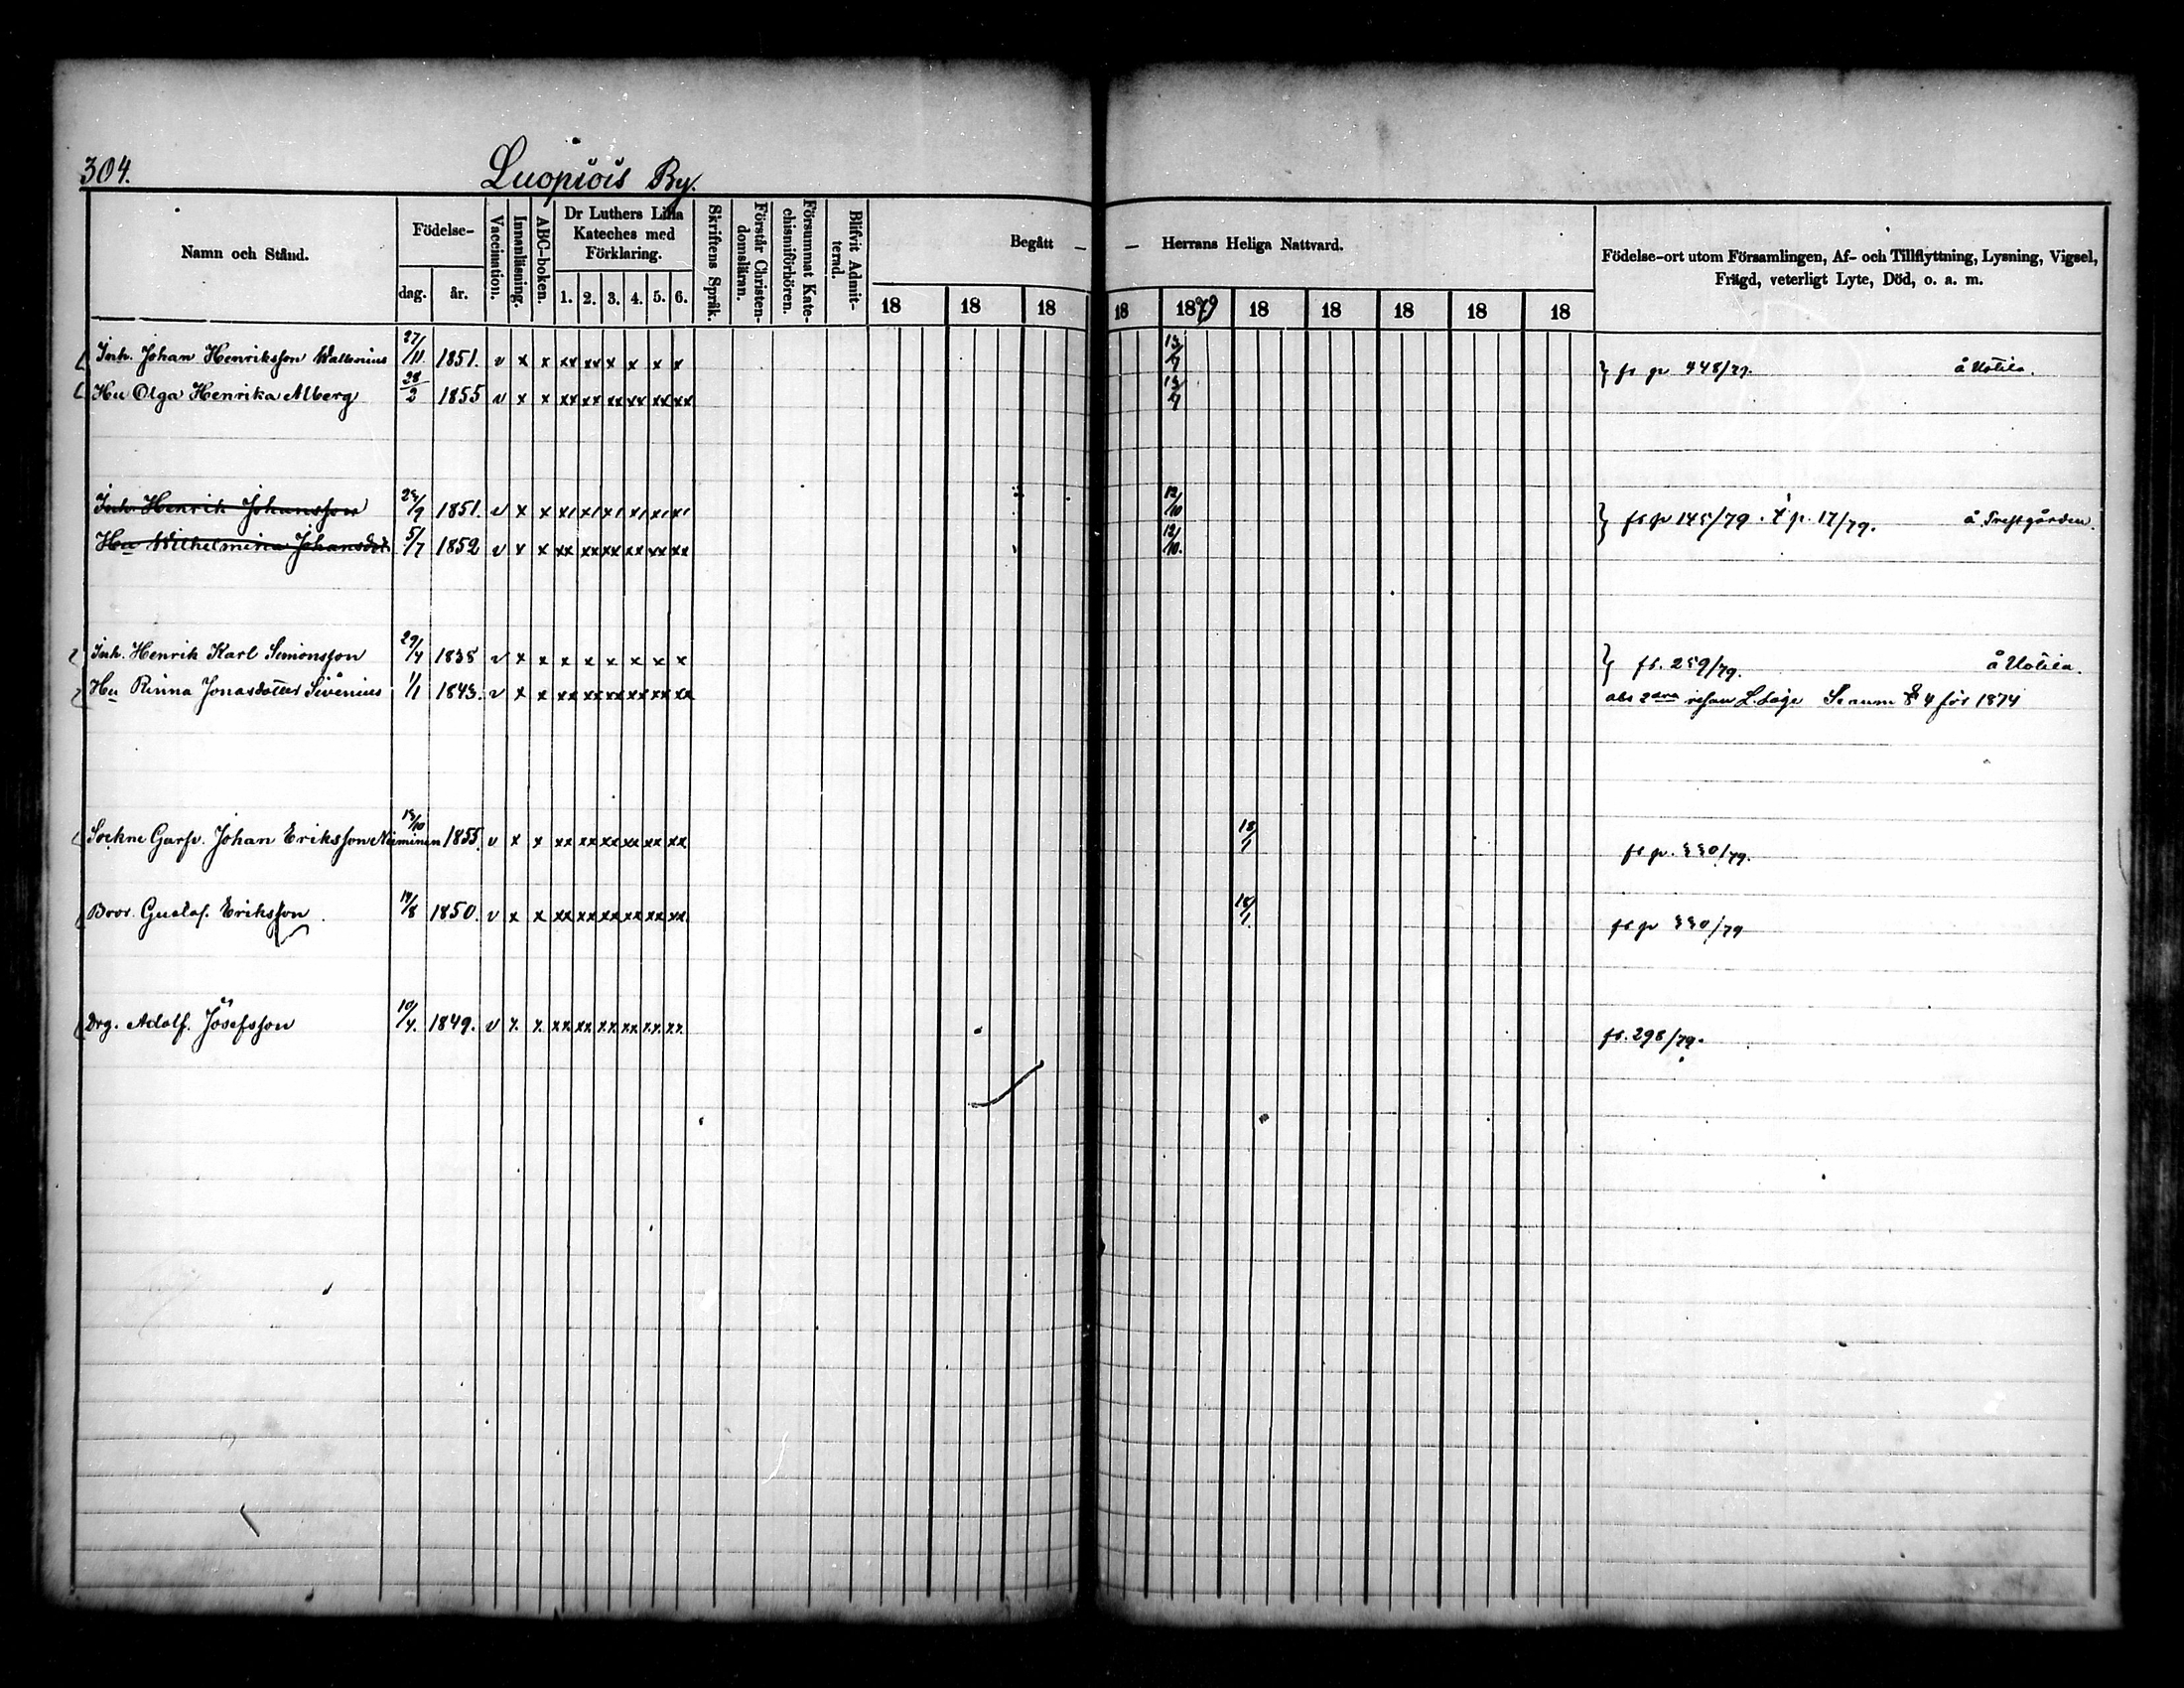 304. Luopiois By.
Namn och Stånd. Födelse- dag. år. Vaccination. Innanläsning. ABC-boken. Dr Luthers Lilla Kateches med Förklaring. 1. 2. 3. 4. 5. 6. Skriftens Språk. Förstår Christendomsläran. Försummat Katechismiförhören. Blifvit Admitterad. Begått — — Herrans Heliga Nattvard. Födelse-ort utom Församlingen, Af- och Tillflyttning, Lysning, Vigsel, Frägd, veterligt Lyte, Död, o. a. m.
18 18 18 18 1879 18 18 18 18 18
Inh. Johan Henriksson Wallenius 27/11 1851. v x x xx xx x x x x 13/7 } fr p 448/79. å Uotila.
Hu Olga Henrika Alberg 28/2 1855 v x x xx xx xx xx xx xx 13/7
Inh. Henrik Johansson 1851. v x x 12/10 } fr p 145/79. t p. 17/79. å Prestgården.
Hu Wilhelmina Johansdotr 5/7 1852 v x x xx xx xx xx xx xx 12/10.
Inh. Henrik Karl Simonsson 29/4 1838 v x x x x x x x x } fr. 259/79. å Uotila.
Hu Rinna Jonasdotter Sivenius 1/1 1843. v x x xx xx xx xx xx xx abs 2dra resan L. Läge 4 för 1874
Sockne Garfv. Johan Eriksson Nieminen 1855. v x x xx xx xx xx xx xx 18/1 fr p. 330/79.
Bror Gustaf Eriksson 1850. v x x xx xx xx xx xx xx 18/1. fr p 330/79
Drg. Adolf Josefsson 10/4. 1849. v x x xx xx xx xx xx xx fr. 298/79.